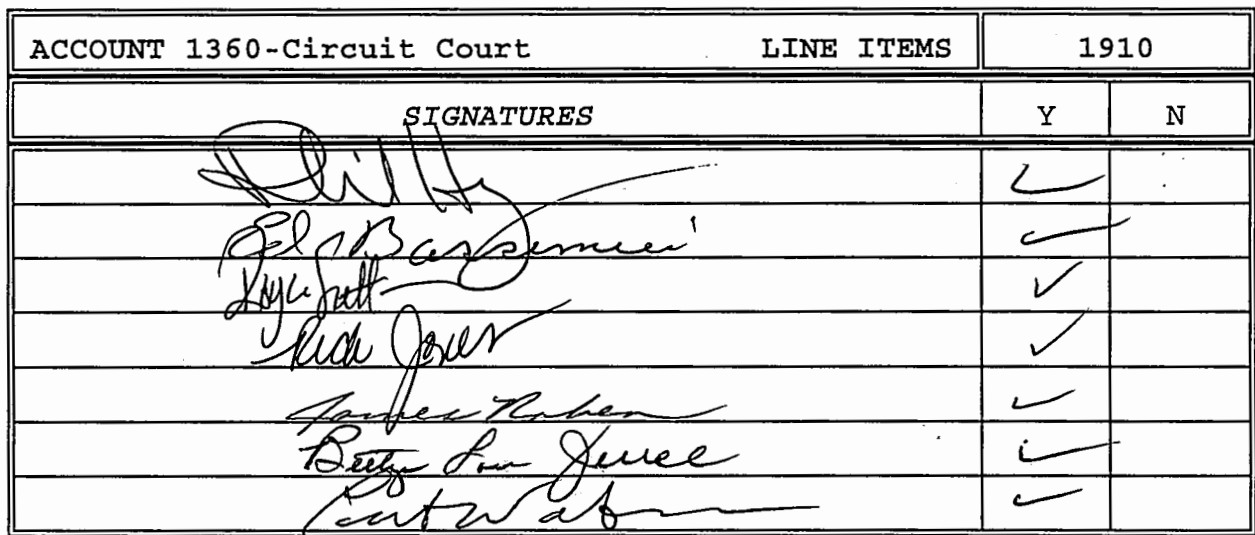 ACCOUNT 1360-Circuit Court LINE ITEMS 1910
SIGNATURES Y N
Phil
Ed Bassemier
Royce Sutton
Rick Jones
James Raben
Betty Lou Jerrel
Curt Wortman